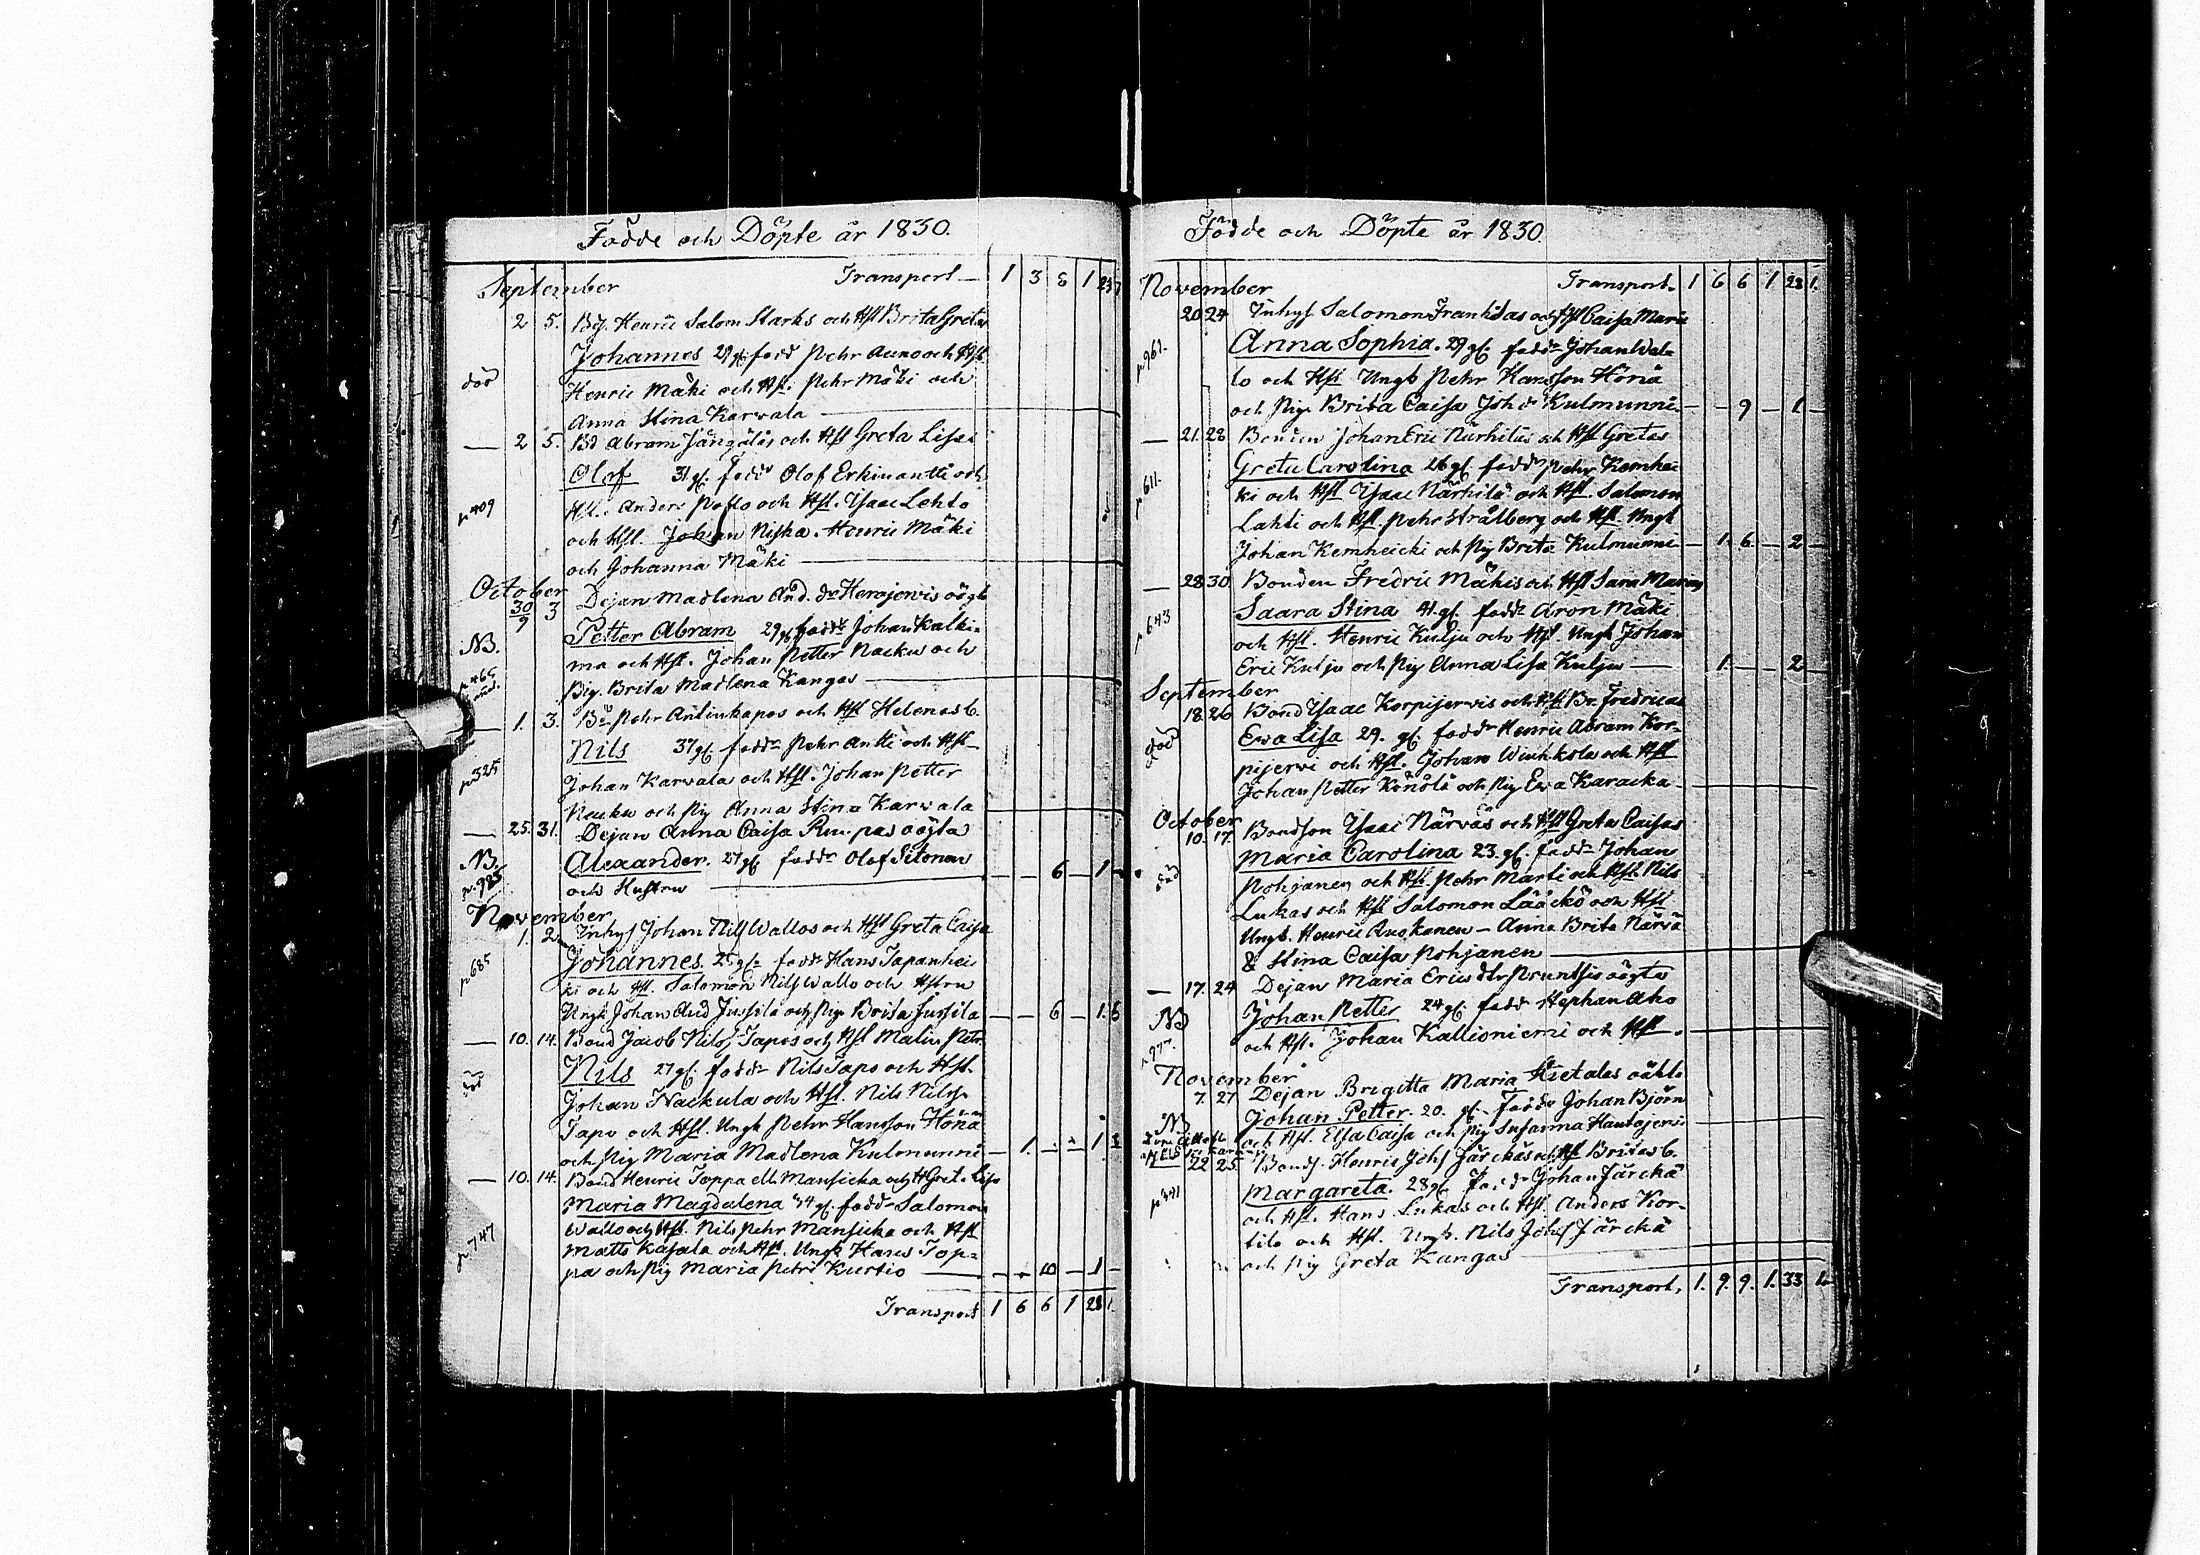 Födde och Döpte år 1830.
Transport — 1 3 6 1 23
September
2 5. Bd. Henric Salom Starks och Hst Brita Gretas
Johannes 29 gl. fadd Pehr Auno och Hst.
död Henric Mäki och Hst. Pehr Mäki och
Anna Stina Karwala
— 2 5. Bd Abram Jängäläs och Hst Greta Lisas
Olof 31 gl. fadd Olof Erkinantti och
p 409 Hst. Anders Poflo och Hst. Isaac Lehto
och Hst. Johan Niska. Henric Mäki
och Johanna Mäki
October
30/9 3 Dejan Madlena And. dr Herajerwis oägta
NB. Petter Abram 29 gl. fadd Johan Kalki-
ma och Hst. Johan Petter Nacku och
p 465 Pig. Brita Madlena Kangas
1. 3. Bd Pehr Antinkapos och Hst Helenas b.
Nils 37 gl. fadd Pehr Antti och Hst
p 325 Johan Karwala och Hst. Johan Petter
Nacku och Pig Anna Stina Karwala
— 25. 31. Dejan Anna Caisa Rumpas oägta
NB. Alexander. 27 gl. fadd Olof Sitonen — — 6 — 1
p. 985 och Hustru
November
1. 2 Inhys Johan Nils Wallos och Hst Greta Caisa
p 685 Johannes. 25 gl. fadd Hans Tapanhei
ki och Hst. Salomon Nils Wallo och Hstru
Ungk Johan And Jussila och Pig Brita Jussila — — 6 — 1. 6
— 10. 14. Bond Jacob Nils Tapos och Hst Malin Petr.
död Nils 27 gl. fadd Nils Tapo och Hst.
Johan Nackula och Hst. Nils Nilss
Tapo och Hst. Ungk Pehr Hansson Hönä
och Pig Maria Madlena Kulmunni — 1. — — 1
— 10. 14. Bond Henric Toppa ell. Mansicka och H Greta Lisa
Maria Magdalena 34 gl. fadd Salomon
Wallo och Hst. Nils Pehr Mansicka och Hst
p 747 Matts Kasala och Hst. Ungk Hans Top-
pa och Pig Maria Petri Kurtio — — 10 — 1 —
Transport 1 6 6 1 28 1.
Födde och Döpte år 1830.
November Transport. 1 6 6 1 28 1.
20 24 Inhys Salomon Franktas och Hst Caisa Maria
p 961. Anna Sophia. 29 gl. fadd Johan Wal-
lo och Hst Ungk Pehr Hansson Hönä
och Pig. Brita Caisa Joh dr Kulmunni — — 9 — 1 —
— 21. 28 Bonden Johan Eric Närhiläs och Hst Gretas
Greta Carolina 26 gl. fadd Pehr Kemhei
p 611. ki och Hst Isaac Närhilä och Hst. Salomon
Lahti och Hst. Pehr Strålberg och Hst. Ungk
Johan Kemheicki och Pig Brita Kulmunni — 1. 6. — 2 —
— 28. 30. Bonden Fredric Mäkis och Hst Sara Marias
Saara Stina 41. gl. fadd Aron Mäki
p 643 och Hst. Henric Kulju och Hst. Ungk Johan
Eric Kulju och Pig Anna Lisa Kulju — 1. — — 2
September
18. 26 Bond Isaac Korpijerwis och Hst Br. Fredricas
död Ewa Lisa 29. gl. fadd Henric Abram Kor-
pijerwi och Hst. Johan Winkkola och Hst
Johan Petter Könölä och Pig Ewa Karacka
October
10. 17. Bondson Isaac Närväs och Hst Greta Caisas
Maria Carolina 23. gl. fadd Johan
död Pohjanen och Hst. Pehr Marti och Hst Nils
Lukas och Hst Salomon Lääckö och Hst
Ungk. Henric Ruokanen — Anna Brita Närvä
& Stina Caisa Pohjanen
— 17. 24 Dejan Maria Erics dtr Pruntsis oägta
NB Johan Petter 24 gl. fadd Stephan Aho
p. 977. och Hst. Johan Kallioniemi och Hst.
November
7. 27 Dejan Brigitta Maria Hietalas oäkta
NB Johan Petter. 20. gl. fadd Johan Björn
och Hst. Elsa Caisa och Pig Susanna Hautajerwi
22 25 Bonds. Henric Johs Järckäs och Hst Britas b.
Margareta. 28 gl. fadd Johan Järckä
p 341 och Hst. Hans Lukas och Hst. Anders Kor-
tilo och Hst. Ungk. Nils Johs Järckä
och Pig Greta Kangas
Transport, 1. 9. 9. 1. 33